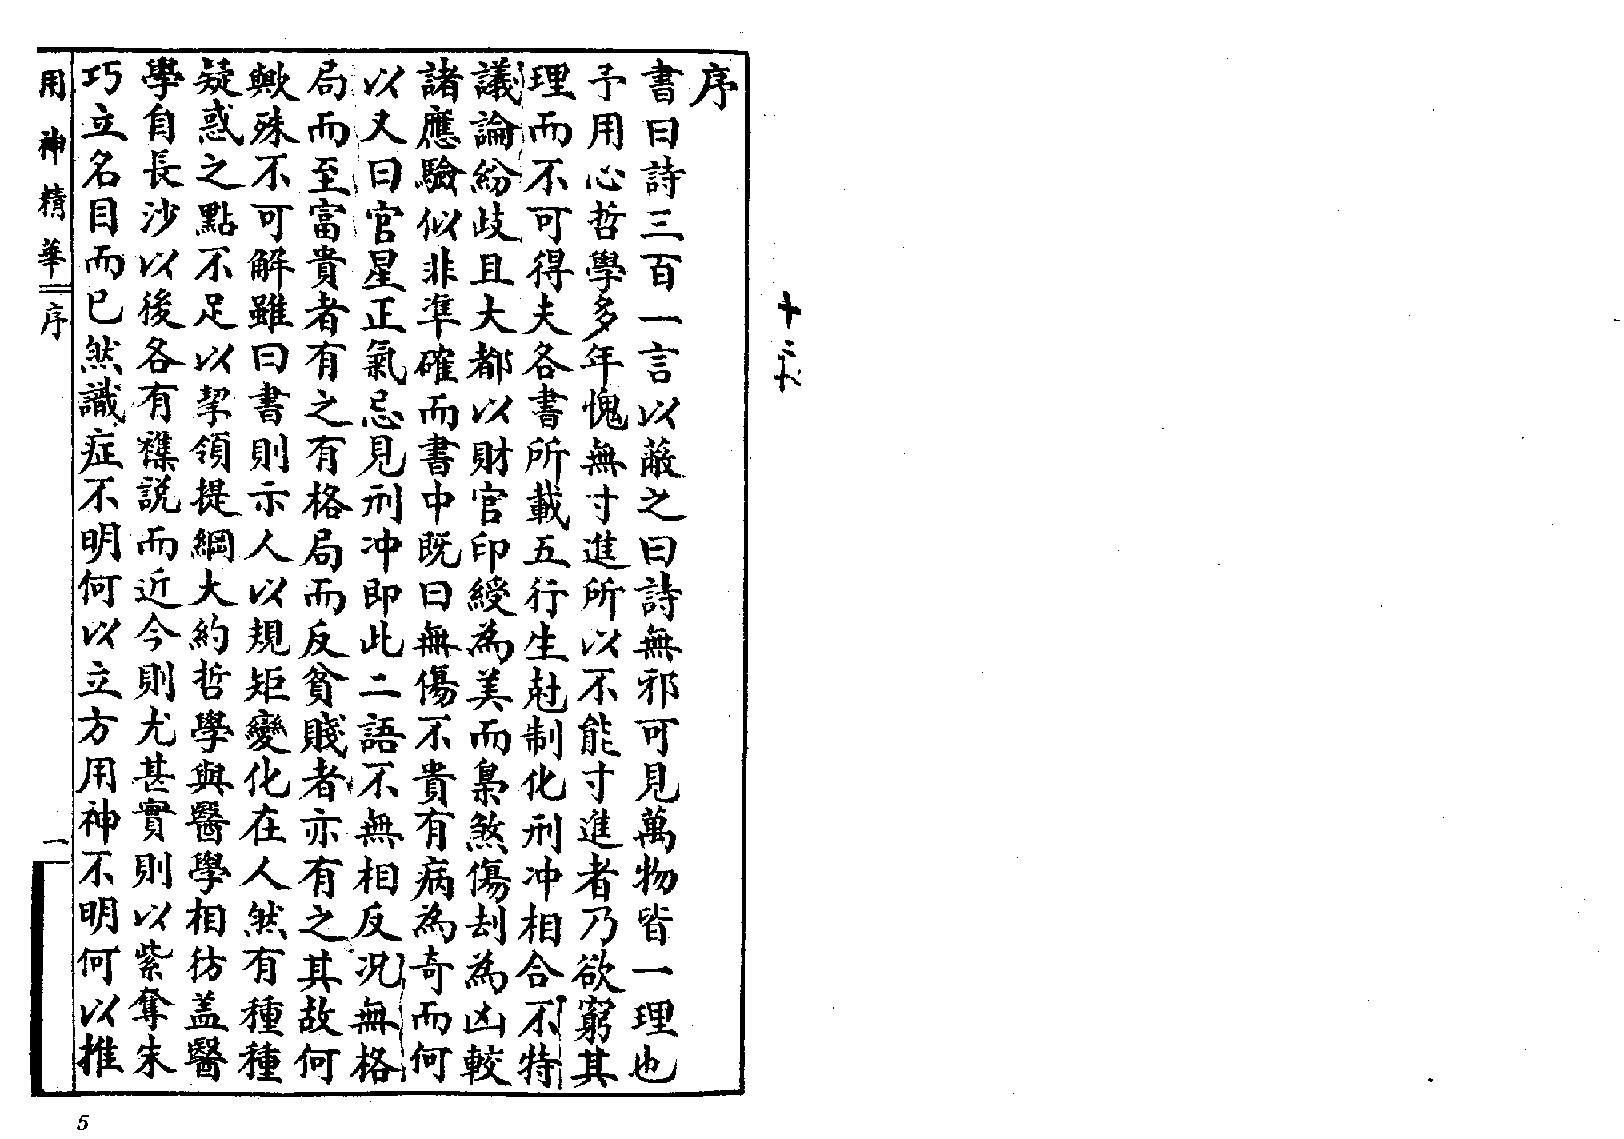 序
書曰詩三百一言以蔽之曰詩無邪可見萬物皆一理也
予用心哲學多年愧無寸進所以不能寸進者乃欲窮其
理而不可得夫各書所載五行生尅制化刑冲相合不特
議論紛歧且大都以財官印綬為美而梟煞傷刦為凶較
諸應驗似非準確而書中既曰無傷不貴有病為奇而何
以又曰官星正氣忌見刑冲即此二語不無相反況無格
局而至富貴者有之有格局而反貧賤者亦有之其故何
歟殊不可解雖曰書則示人以規矩變化在人然有種種
疑惑之點不足以挈領提綱大約哲學與醫學相彷盖醫
學自長沙以後各有襍説而近今則尤甚實則以紫奪朱
巧立名目而已然識症不明何以立方用神不明何以推
用神精華 序
一
5